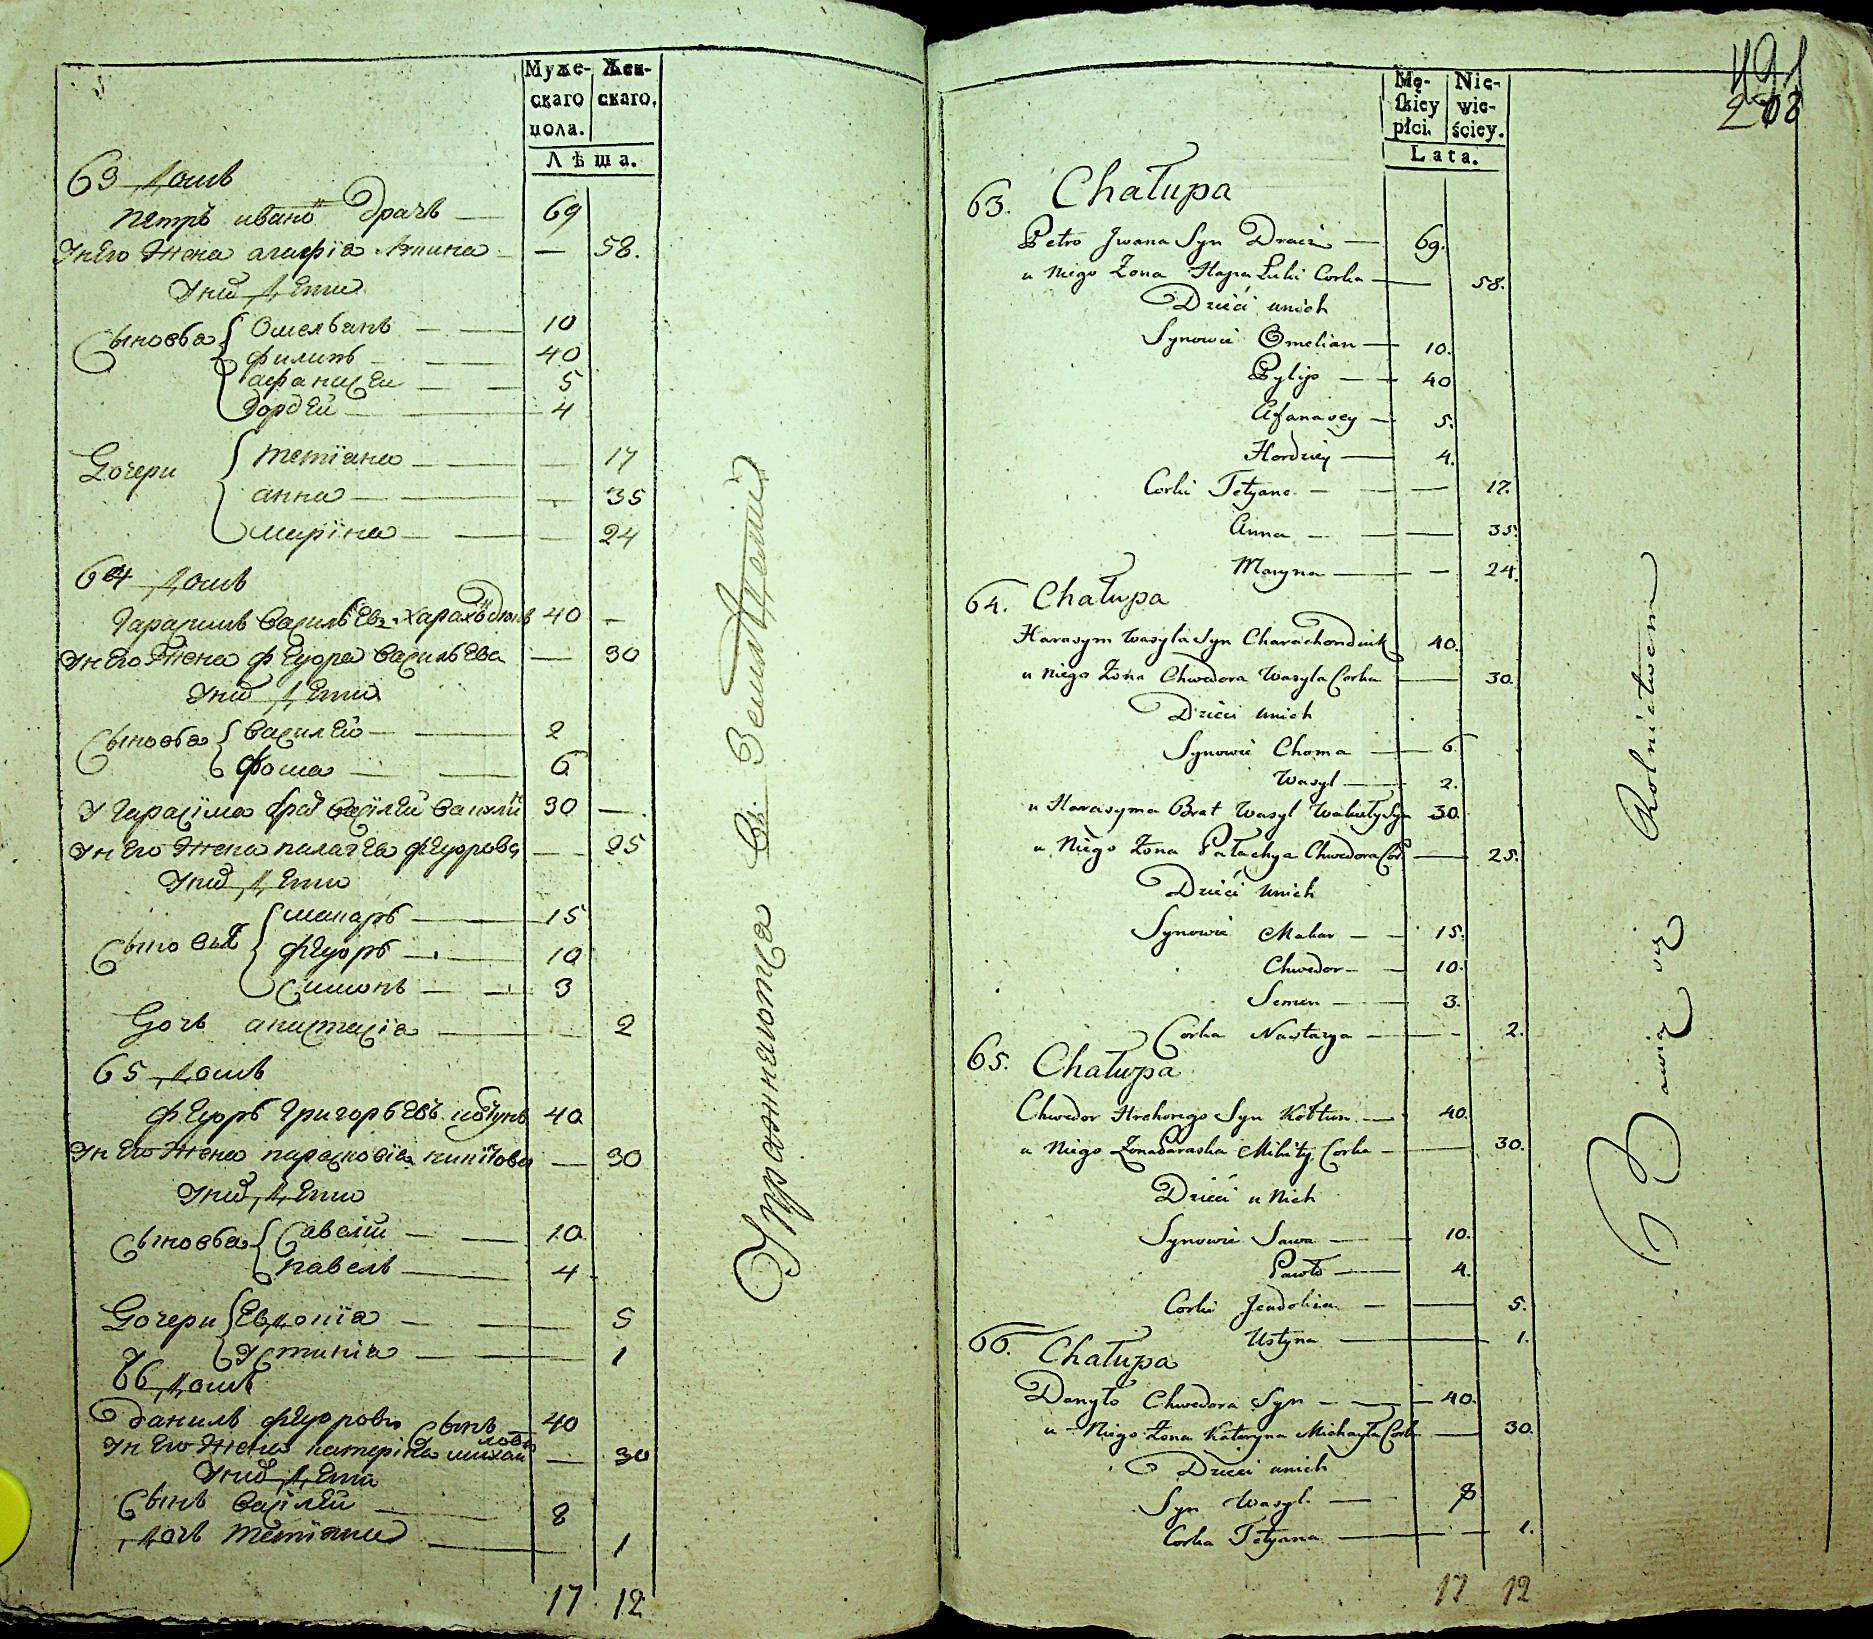 Муже-
скаго
пола.
Жен-
скаго.
Лѣта.
63 домъ
Петръ Ивано Драчъ — 69
У него Жена Агафія — 58.
У них дети
Сыновья Омельянъ — 10
Филипъ — 40
Афанасеи — 5
Гордѣй — 4
Дочери Тетіана — 17
Анна — 35
Маріна — 24
64 домъ
Гарасимъ Васильевъ 40 —
У него Жена Феѹдора Васильева — 30
У них дети
Сыновья Василей — 2
Фома — 6
У Гарасіма брат Василей 30 —
У него Жена Палагеа Феѹдорова — 25
У них дети
Сыновья Макаръ — 15
Феѹдоръ — 10
Симонъ — 3
Дочь Анастасіа — 2
65 домъ
Феѹдоръ Григорьевъ 40
У него Жена Парасковіа — 30
У них дети
Сыновья Савелій — 10
Павелъ — 4
Дочери Евдокіа — 5
Устиніа — 1
66 домъ
Данилъ Феѹдоровъ Сынъ 40
У него Жена Катеріна Михайлова — 30
У них дети
Сынъ Василей — 8
Дочь Тетіана — 1
17 12
Упражняются въ Земледелии
491
208
Mę-
skiey
płci.
Nie-
wie-
ściey.
Lata.
63. Chałupa
Petro Jwana Syn Dracz — 69.
u niego Żona Hapa Łuki Corka — 58.
Dzieci unich
Synowie Omelian — 10.
Pylyp — 40
Afanasey — 5.
Hordziey — 4.
Corki Tetyana — 17.
Anna — 35.
Maryna — 24.
64. Chałupa
Harasym Wasyla Syn Charachondiuk 40.
u niego Żona Chwedora Wasyla Corka — 30.
Dzieci unich
Synowie Choma — 6.
Wasyl — 2.
u Harasyma Brat Wasyl 30.
u Niego Żona Pałachya Chwedora Cor — 25.
Dzieci unich
Synowie Makar — 15.
Chwedor — 10.
Semen — 3.
Corka Nastazya — 2.
65. Chałupa
Chwedor Hrehorego Syn Kołtun — 40.
u Niego Żona Paraska Mikity Corka — 30.
Dzieci u Nich
Synowie Sawa — 10.
Pawło — 4.
Corki Jewdokia — 5.
Ustyna — 1.
66. Chałupa
Danyło Chwedora Syn — 40.
u Niego Żona Kataryna Michayła Cork — 30.
Dzieci unich
Syn Wasyl — 8
Corka Tetyana — 1.
17 12
Bawią się Rolnictwem